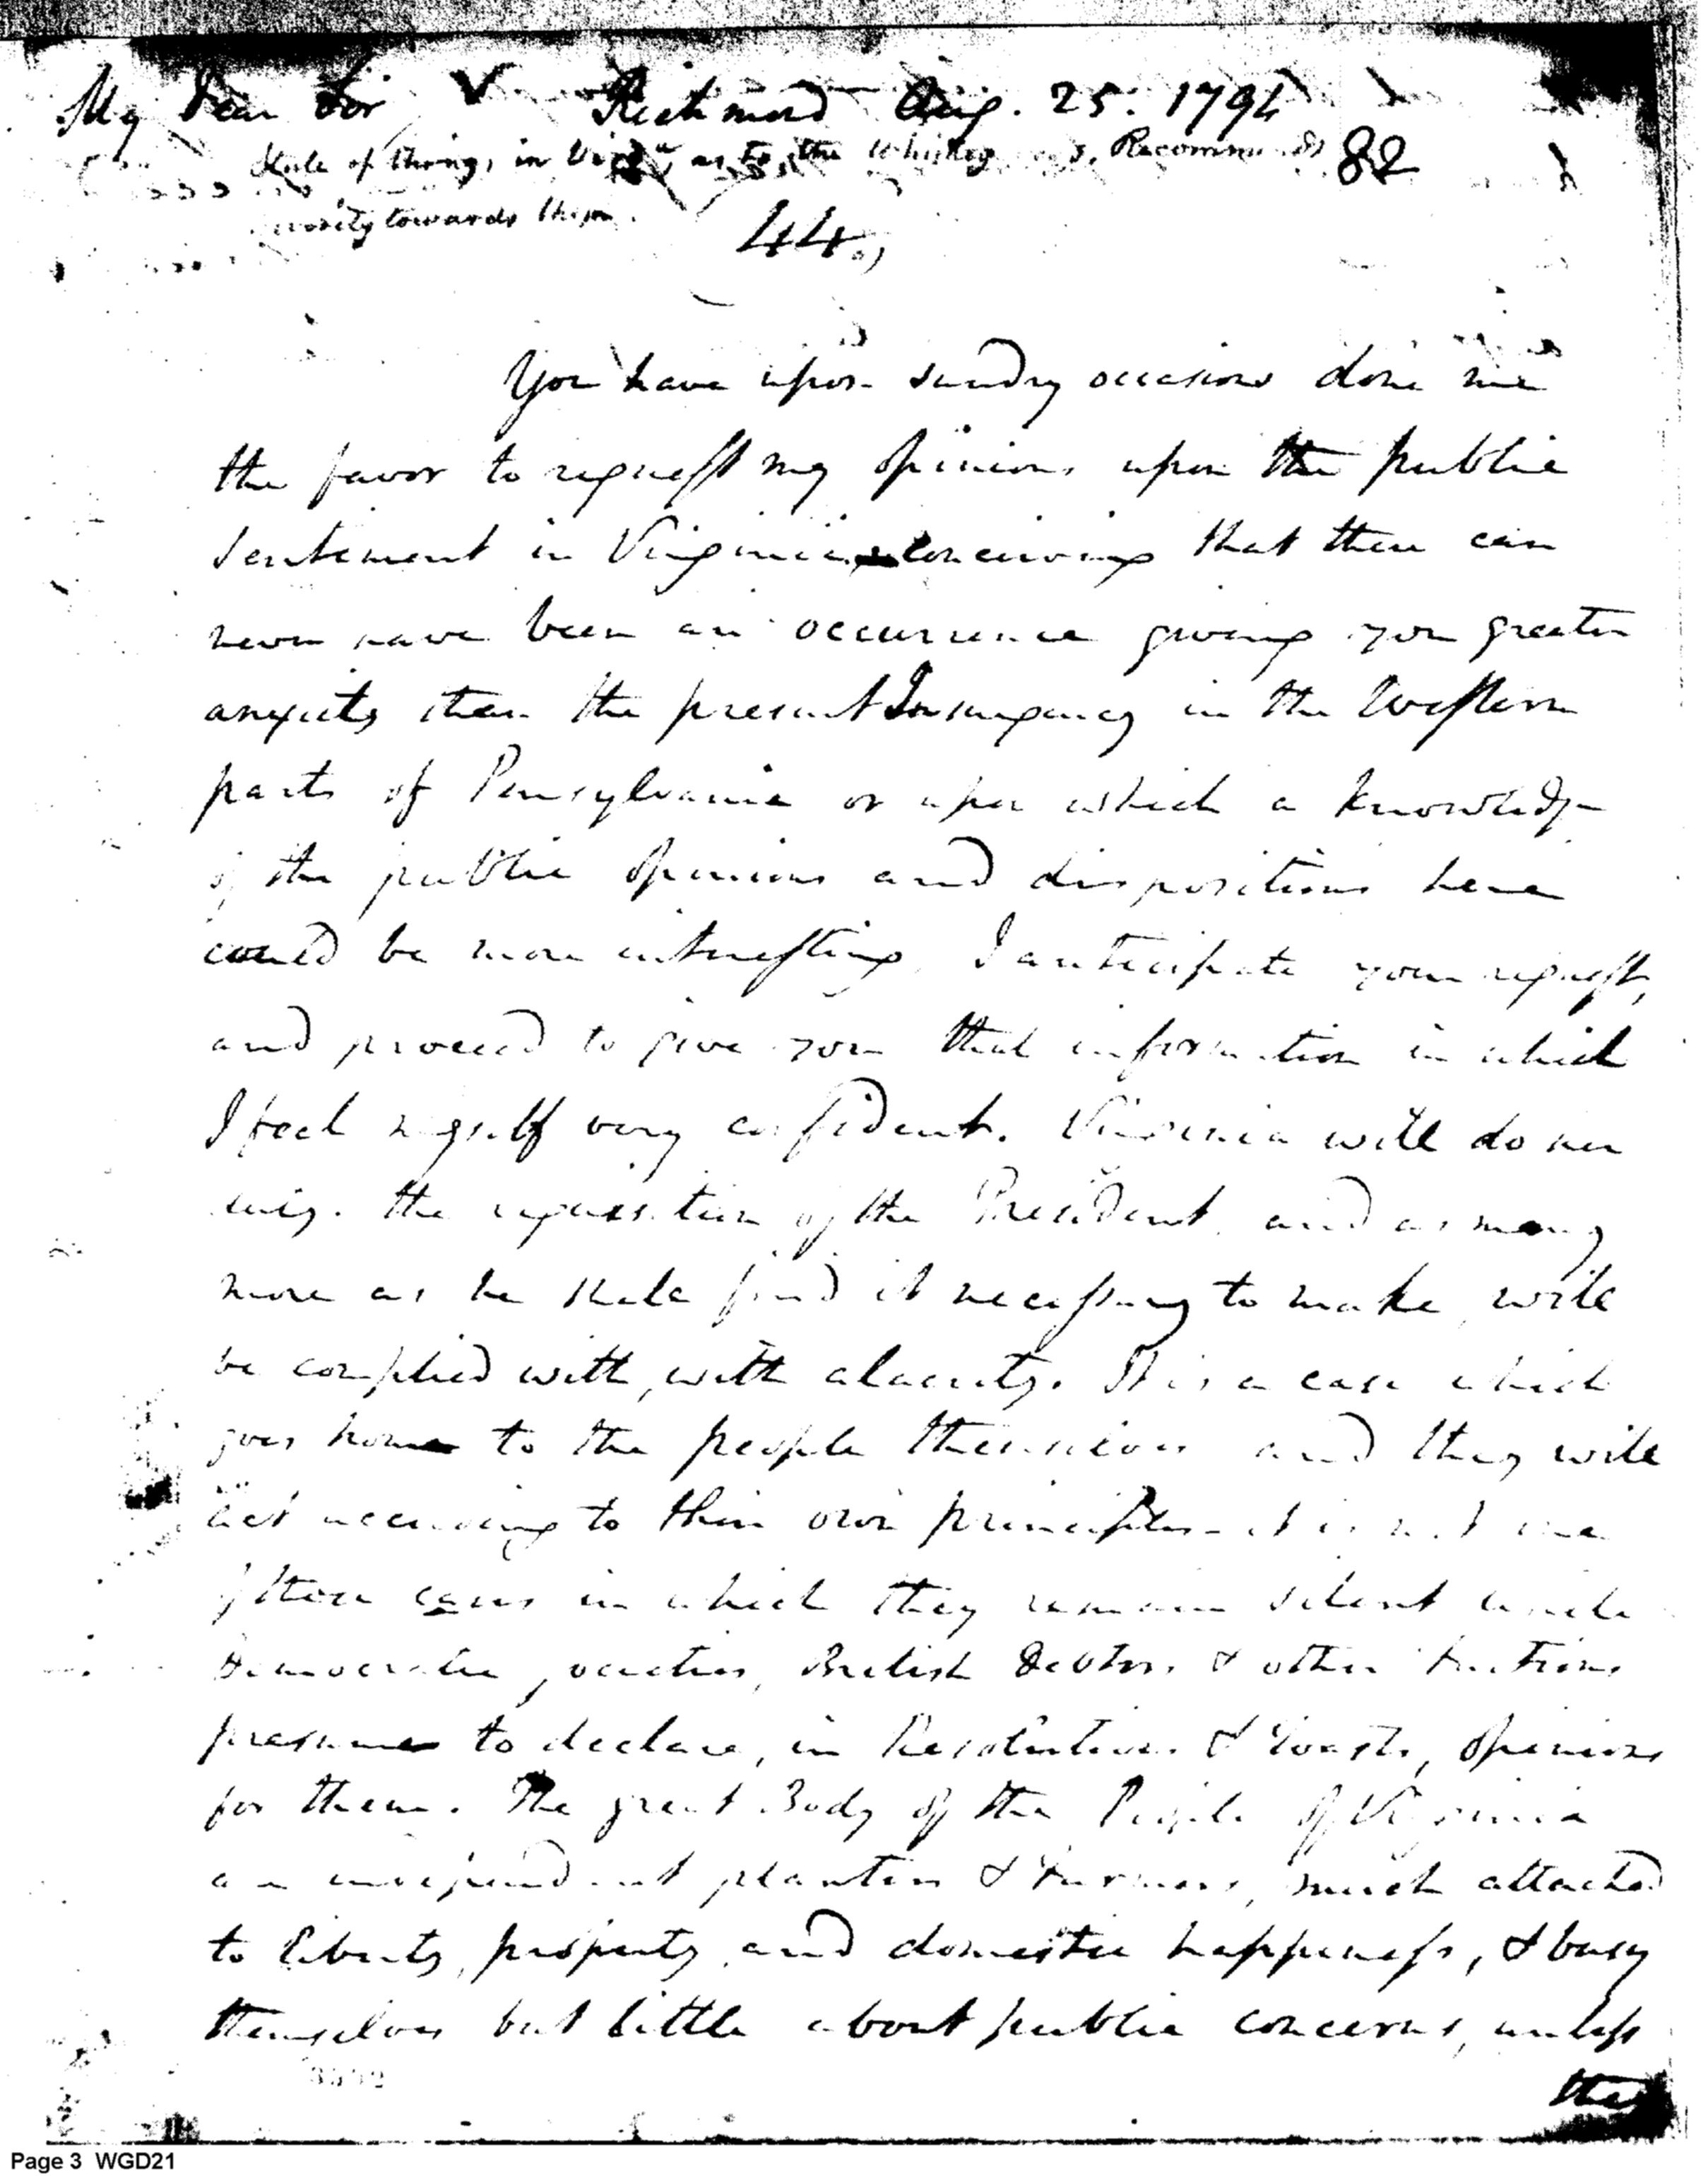 My Dear Sir Richmond Aug. 25. 1794
State of things in Virga. as to the Whiskey Recommends 82
towards them.
44
You have upon sundry occasions done me
the favor to request my opinions upon the public
sentiment in Virginia, conceiving that there can
never have been an occurrence giving you greater
anxiety than the present Insurgency in the Western
parts of Pensylvania or upon which a knowledge
of the public opinions and dispositions here
could be more interesting, I anticipate your request,
and proceed to give you that information in which
I feel myself very confident. Virginia will do her
duty. the requisition of the President, and as many
more as he shall find it necessary to make, will
be complied with, with alacrity. It is a case which
goes home to the people themselves and they will
act according to their own principles - it is not one
of those cases in which they remain silent while
Democratic societies, British Debtors & other factions
presume to declare, in Resolutions & toasts, opinions
for them. The great Body of the People of Virginia
are independent planters & Farmers, much attached
to liberty, property, and domestic happiness, & busy
themselves but little about public concerns, unless
they
3532
Page 3 WGD21